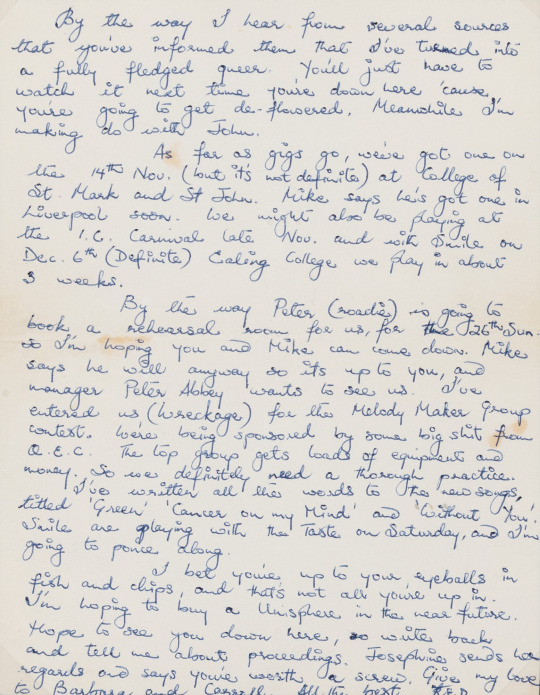 By the way I hear from several sources
that you've informed them that I've turned into
a fully fledged queer. You'll just have to
watch it next time you're down here 'cause,
you're going to get de-flowered. Meanwhile I'm
making do with John.
As far as gigs go, we've got one on
the 14th Nov. (but it's not definite) at College of
St. Mark and St John. Mike says he's got one in
Liverpool soon. We might also be playing at
the I.C. Carnival late Nov. and with Smile on
Dec. 6th (Definite) Ealing College we play in about
3 weeks.
By the way Peter (roadie) is going to
book a rehearsal room for us, for the 26th Sun.
so I'm hoping you and Mike can come down. Mike
says he will anyway so its up to you, and
manager Peter Abbey wants to see us. I've
entered us (Wreckage) for the Melody Maker Group
contest. We're being sponsored by some big shit from
Q.E.C. The top group gets loads of equipment and
money. So we definitely need a thorough practice.
I've written all the words to the new songs,
titled 'Green' 'Cancer on my Mind' and 'Without You'.
Smile are playing with the Taste on Saturday, and I'm
going to ponce along.
I bet you're up to your eyeballs in
fish and chips, and that's not all you're up in.
I'm hoping to buy a Unisphere in the near future.
Hope to see you down here, so write back
and tell me about proceedings. Josephine sends her
regards and says you're worth a screw. Give my love
to Barbara and All the best.